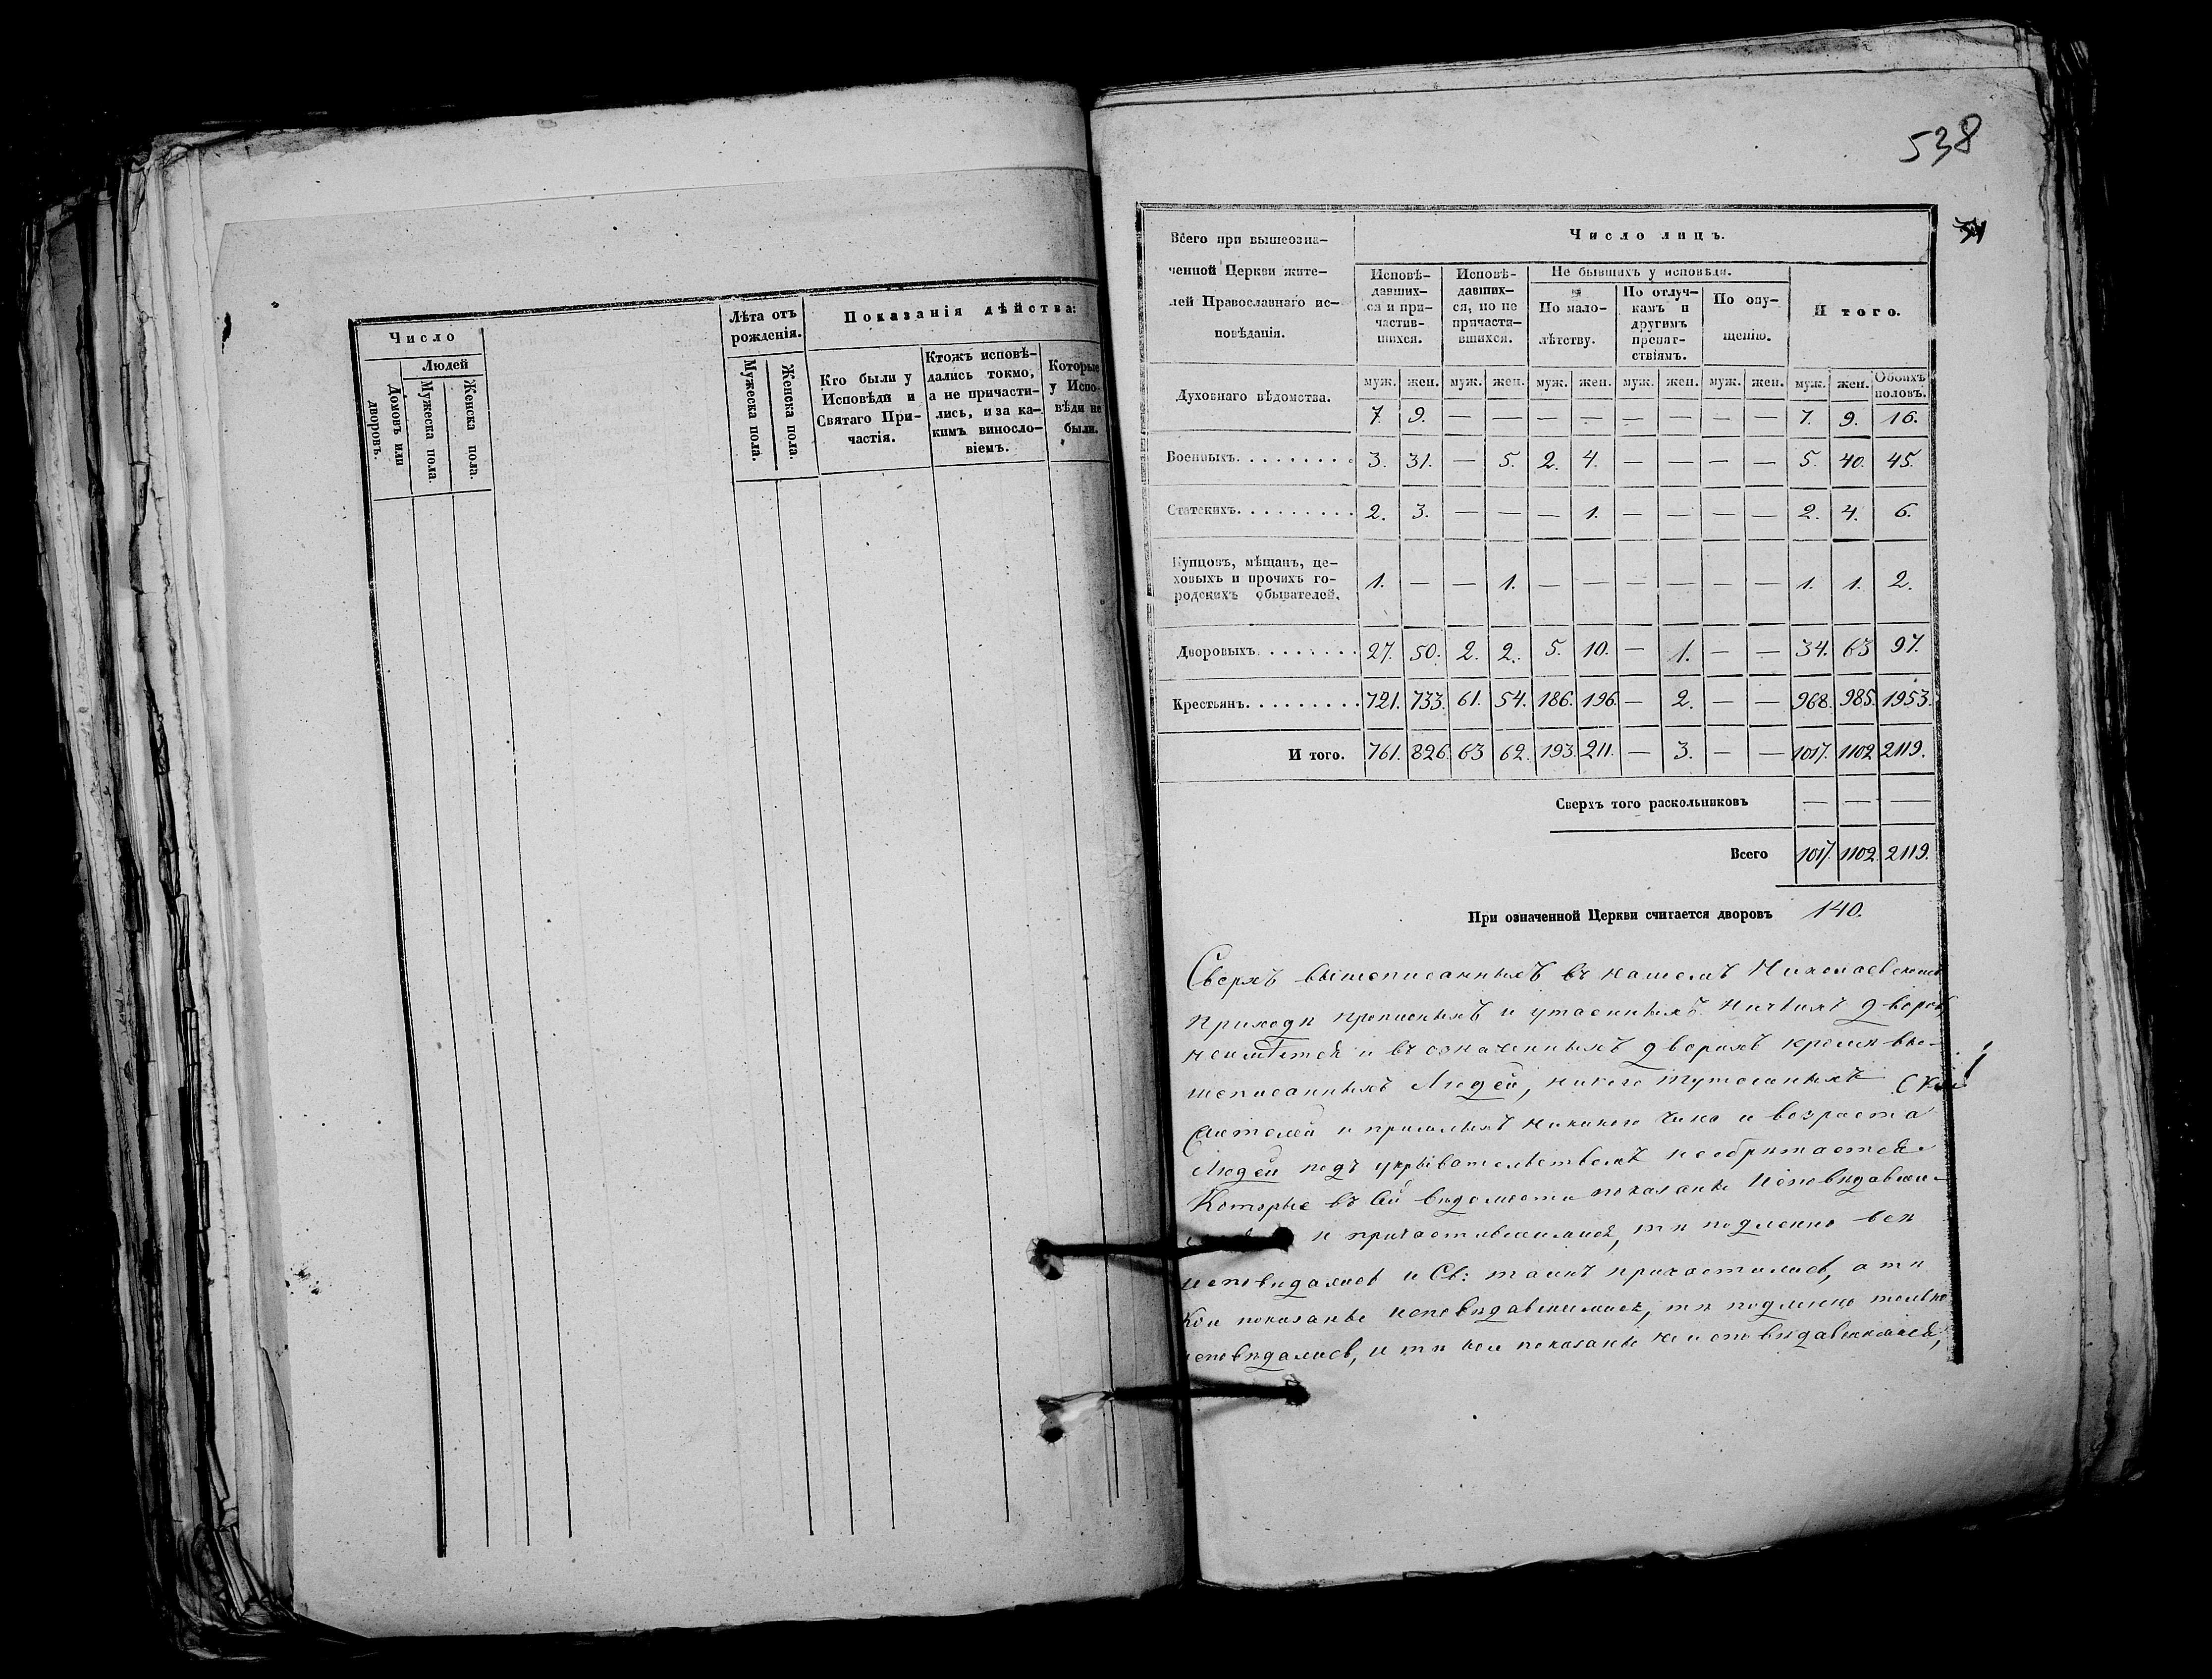 Число
Людей
Домовъ или дворовъ.
Мужеска пола.
Женска пола.
Лѣта отъ рожденія.
Мужеска пола.
Женска пола.
Показанія дѣйства:
Кто были у Исповѣди и Святаго Причастія.
Ктожъ исповѣдались токмо, а не причастились, и за какимъ винословіемъ.
Которые у Исповѣди не были.
538
Всего при вышеозна-
ченной Церкви жите-
лей Православнаго ис-
повѣданія.
Число лицъ.
Исповѣ-
давших-
ся и при-
частив-
шихся.
Исповѣ-
давших-
ся, но не
причасти-
вшихся.
Не бывшихъ у исповѣди.
По мало-
лѣтству.
По отлуч-
камъ и
другимъ
препят-
ствіямъ.
По опу-
щенію.
И того.
муж. жен. муж. жен. муж. жен. муж. жен. муж. жен. муж. жен. Обоихъ половъ.
Духовнаго вѣдомства. 7. 9. — — — — — — — — 7. 9. 16.
Военныхъ. 3. 31. — 5. 2. 4. — — — — 5. 40. 45.
Статскихъ. 2. 3. — — — 1. — — — — 2. 4. 6.
Купцовъ, мѣщанъ, це-
ховыхъ и прочихъ го-
родскихъ обывателей. 1. — — 1. — — — — — — 1. 1. 2.
Дворовыхъ 27. 50. 2. 2. 5. 10. — 1. — — 34. 63 97.
Крестьянъ. 721. 733. 61. 54. 186. 196. — 2. — — 968. 985. 1953.
И того. 761. 826. 63 62. 193. 211. — 3. — — 1017. 1102 2119.
Сверхъ того раскольниковъ — — —
Всего 1017. 1102. 2119.
При означенной Церкви считается дворовъ 140.
Сверхъ вышеписанныхъ въ нашемъ Николаевскомъ
Приходѣ прописныхъ и утаенныхъ ничьихъ дворовъ
неимѣется и въ означенныхъ дворахъ кромѣ вы-
шеписанныхъ Людей, никого тутошныхъ
жителей и пришлыхъ никакого чина и возраста
Людей подъ укрывательствомъ необрѣтается.
Которые въ сей вѣдомости показаны исповѣдавши-
и причастившимися, тѣ подленно всѣ
исповѣдались и Св: таинъ причастились, а тѣ
кои показаны исповѣдавшимися, тѣ подленно только
исповѣдались, и тѣ кои показаны не исповѣдавшимися,